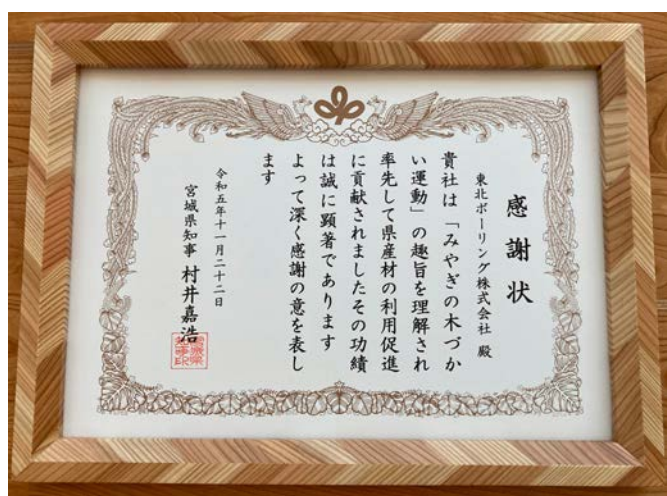 感謝状
東北ボーリング株式会社 殿
貴社は「みやぎの木づか
い運動」の趣旨を理解され
率先して県産材の利用促進
に貢献されましたその功績
は誠に顕著であります
よって深く感謝の意を表し
ます
令和五年十一月二十二日
宮城県知事 村井嘉浩